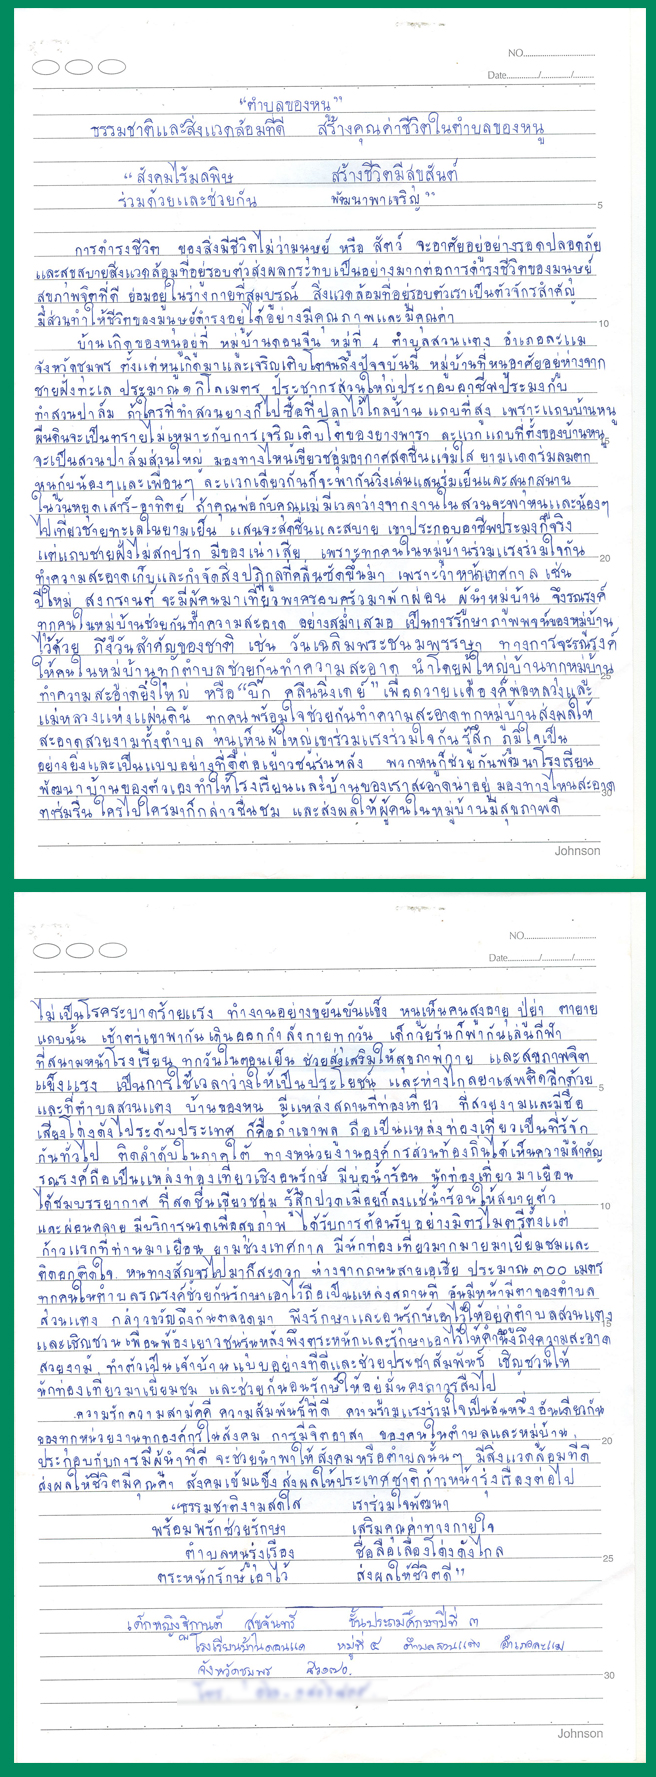 NO.
Date / /
"ตำบลของหนู"
ธรรมชาติและสิ่งแวดล้อมที่ดี สร้างคุณค่าชีวิตในตำบลของหนู
"สังคมไร้มลพิษ สร้างชีวิตมีสุขสันต์
ร่วมด้วยและช่วยกัน พัฒนาพาเจริญ"
5
การดำรงชีวิต ของสิ่งมีชีวิตไม่ว่ามนุษย์ หรือ สัตว์ จะอาศัยอยู่อย่างรอดปลอดภัย
และสุขสบายสิ่งแวดล้อมที่อยู่รอบตัวส่งผลกระทบเป็นอย่างมากต่อการดำรงชีวิตของมนุษย์
สุขภาพจิตที่ดี ย่อมอยู่ในร่างกายที่สมบูรณ์ สิ่งแวดล้อมที่อยู่รอบตัวเราเป็นตัวจักรสำคัญ
มีส่วนทำให้ชีวิตของมนุษย์ดำรงอยู่ได้อย่างมีคุณภาพและมีคุณค่า
10
บ้านเกิดของหนูอยู่ที่ หมู่บ้านดอนจีน หมู่ที่ 4 ตำบลสวนแตง อำเภอละแม
จังหวัดชุมพร ตั้งแต่หนูเกิดมาและเจริญเติบโตจนถึงปัจจุบันนี้ หมู่บ้านที่หนูอาศัยอยู่ห่างจาก
ชายฝั่งทะเล ประมาณ ๑ กิโลเมตร ประชากรส่วนใหญ่ประกอบอาชีพประมงกับ
ทำสวนปาล์ม ถ้าใครที่ทำสวนยางก็ไปซื้อที่ปลูกไว้ไกลบ้าน แถบที่สูง เพราะแถบบ้านหนู
ผืนดินจะเป็นทรายไม่เหมาะกับการเจริญเติบโตของยางพารา ละแวกแถบที่ตั้งของบ้านหนู
15
จะเป็นสวนปาล์มส่วนใหญ่ มองทางไหนเขียวชอุ่มอากาศสดชื่นแจ่มใส ยามแดดร่มลมตก
หนูกับน้องๆและเพื่อนๆ ละแวกเดียวกันก็จะพากันวิ่งเล่นแสนร่มเย็นและสนุกสนาน
ในวันหยุดเสาร์-อาทิตย์ ถ้าคุณพ่อกับคุณแม่มีเวลาว่างจากงานในสวนจะพาหนูและน้องๆ
ไปเที่ยวชายทะเลในยามเย็น แสนจะสดชื่นและสบาย เขาประกอบอาชีพประมงก็จริง
แต่แถบชายฝั่งไม่สกปรก มีของเน่าเสีย เพราะทุกคนในหมู่บ้านร่วมแรงร่วมใจกัน
20
ทำความสะอาดเก็บและกำจัดสิ่งปฏิกูลที่คลื่นซัดขึ้นมา เพราะว่าหน้าเทศกาล เช่น
ปีใหม่ สงกรานต์ จะมีผู้คนมาเที่ยวพาครอบครัวมาพักผ่อน ผู้นำหมู่บ้าน จึงรณรงค์
ทุกคนในหมู่บ้านช่วยกันทำความสะอาด อย่างสม่ำเสมอ เป็นการรักษาภาพพจน์ของหมู่บ้าน
ไว้ด้วย ถึงวันสำคัญของชาติ เช่น วันเฉลิมพระชนมพรรษา ทางการจะรณรงค์
ให้คนในหมู่บ้านทุกตำบลช่วยกันทำความสะอาด นำโดยผู้ใหญ่บ้านทุกหมู่บ้าน
25
ทำความสะอาดยิ่งใหญ่ หรือ "บิ๊ก คลีนนิ่งเดย์" เพื่อถวายแด่องค์พ่อหลวงและ
แม่หลวงแห่งแผ่นดิน ทุกคนพร้อมใจช่วยกันทำความสะอาดทุกหมู่บ้านส่งผลให้
สะอาดสวยงามทั้งตำบล หนูเห็นผู้ใหญ่เขาร่วมแรงร่วมใจกัน รู้สึก ภูมิใจเป็น
อย่างยิ่งและเป็นแบบอย่างที่ดีต่อเยาวชนรุ่นหลัง พวกหนูก็ช่วยกันพัฒนาโรงเรียน
พัฒนาบ้านของตัวเองทำให้โรงเรียนและบ้านของเราสะอาดน่าอยู่ มองทางไหนสะอาด
30
ร่มรื่น ใครไปใครมาก็กล่าวชื่นชม และส่งผลให้ผู้คนในหมู่บ้านมีสุขภาพดี
Johnson
NO.
Date / /
ไม่เป็นโรคระบาดร้ายแรง ทำงานอย่างขยันขันแข็ง หนูเห็นคนสูงอายุ ปู่ย่า ตายาย
แถบนั้น เช้าตรู่เขาพากันเดินออกกำลังกายทุกวัน เด็กวัยรุ่นก็พากันเล่นกีฬา
ที่สนามหน้าโรงเรียน ทุกวันในตอนเย็น ช่วยส่งเสริมให้สุขภาพกาย และสุขภาพจิต
แข็งแรง เป็นการใช้เวลาว่างให้เป็นประโยชน์ และห่างไกลยาเสพติดอีกด้วย
5
และที่ตำบลสวนแตง บ้านของหนู มีแหล่งสถานที่ท่องเที่ยว ที่สวยงามและมีชื่อ
เสียงโด่งดังไประดับประเทศ ก็คือถ้ำเขาพลู ถือเป็นแหล่งท่องเที่ยวเป็นที่รู้จัก
กันทั่วไป ติดลำดับในภาคใต้ ทางหน่วยงานองค์กรส่วนท้องถิ่นได้เห็นความสำคัญ
รณรงค์ถือเป็นแหล่งท่องเที่ยวเชิงอนุรักษ์ มีบ่อน้ำร้อน นักท่องเที่ยวมาเยือน
ได้ชมบรรยากาศ ที่สดชื่นเขียวชอุ่ม รู้สึกปวดเมื่อยก็ลงแช่น้ำร้อนให้สบายตัว
10
และผ่อนคลาย มีบริการนวดเพื่อสุขภาพ ได้รับการต้อนรับอย่างมิตรไมตรีตั้งแต่
ก้าวแรกที่ท่านมาเยือน ยามช่วงเทศกาล มีนักท่องเที่ยวมากมายมาเยี่ยมชมและ
ติดอกติดใจ หนทางสัญจรไปมาก็สะดวก ห่างจากถนนสายเอเชีย ประมาณ ๓๐๐ เมตร
ทุกคนในตำบลรณรงค์ช่วยกันรักษาเอาไว้ถือเป็นแหล่งสถานที่ อันมีหน้ามีตาของตำบล
สวนแตง กล่าวขวัญถึงกันตลอดมา พึงรักษาและอนุรักษ์เอาไว้ให้อยู่คู่ตำบลสวนแตง
15
และเชิญชวนเพื่อนพ้องเยาวชนรุ่นหลังพึงตระหนักและรักษาเอาไว้ให้คำนึงถึงความสะอาด
สวยงาม ทำตัวเป็นเจ้าบ้านแบบอย่างที่ดีและช่วยประชาสัมพันธ์ เชิญชวนให้
นักท่องเที่ยวมาเยี่ยมชม และช่วยกันอนุรักษ์ให้อยู่มั่นคงถาวรสืบไป
ความรักความสามัคคี ความสัมพันธ์ที่ดี ความร่วมแรงร่วมใจเป็นอันหนึ่งอันเดียวกัน
ของทุกหน่วยงานทุกองค์กรในสังคม การมีจิตอาสา ของคนในตำบลและหมู่บ้าน
20
ประกอบกับการมีผู้นำที่ดี จะช่วยนำพาให้สังคมหรือตำบลนั้นๆ มีสิ่งแวดล้อมที่ดี
ส่งผลให้ชีวิตมีคุณค่า สังคมเข้มแข็งส่งผลให้ประเทศชาติก้าวหน้ารุ่งเรืองต่อไป
"ธรรมชาติงามสดใส เราร่วมใจพัฒนา
พร้อมพรักช่วยรักษา เสริมคุณค่าทางกายใจ
ตำบลหนูรุ่งเรือง ชื่อลือเลื่องโด่งดังไกล
25
ตระหนักรักษ์เอาไว้ ส่งผลให้ชีวิตดี"
เด็กหญิงฐิกานต์ สุขจันทร์ ชั้นประถมศึกษาปีที่ ๓
โรงเรียนบ้านดอนแค หมู่ที่ ๕ ตำบลสวนแตง อำเภอละแม
จังหวัดชุมพร ๘๖๑๗๐
30
Johnson